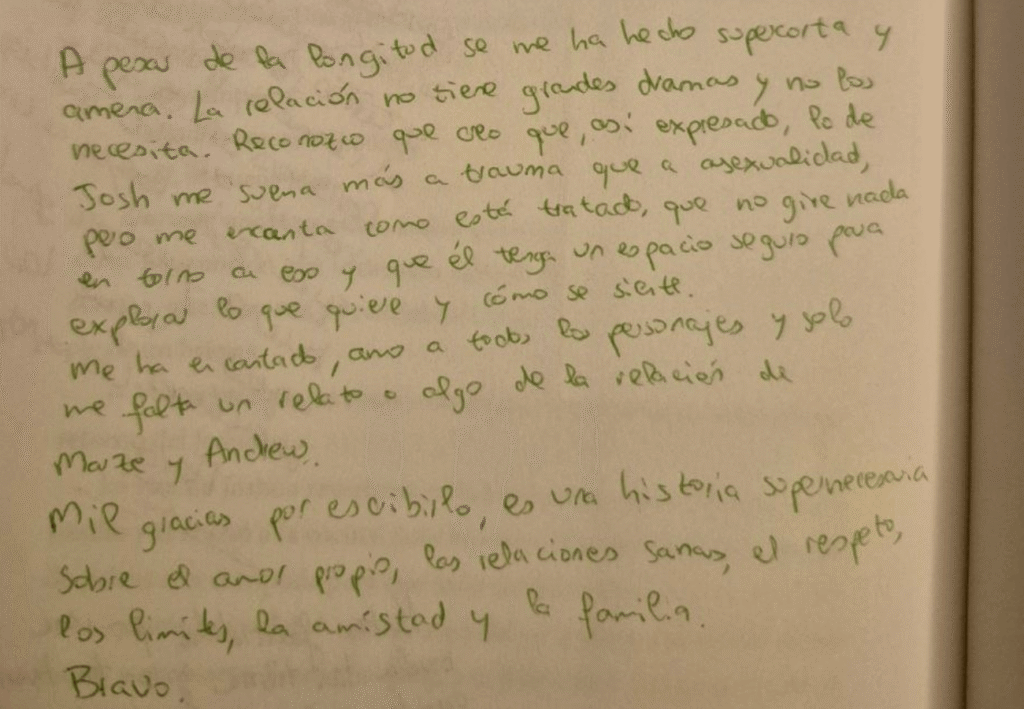 A pesar de la longitud se me ha hecho supercorta y
amena. La relación no tiene grandes dramas y no los
necesita. Reconozco que creo que, así expresado, lo de
Josh me suena más a trauma que a asexualidad,
pero me encanta como está tratado, que no gire nada
en torno a eso y que él tenga un espacio seguro para
explorar lo que quiere y cómo se siente.
Me ha encantado, amo a todos los personajes y solo
me falta un relato o algo de la relación de
Maze y Andrew.
Mil gracias por escibirlo, es una historia supernecesaria
sobre el amor propio, las relaciones sanas, el respeto,
los límites, la amistad y la familia.
Bravo.